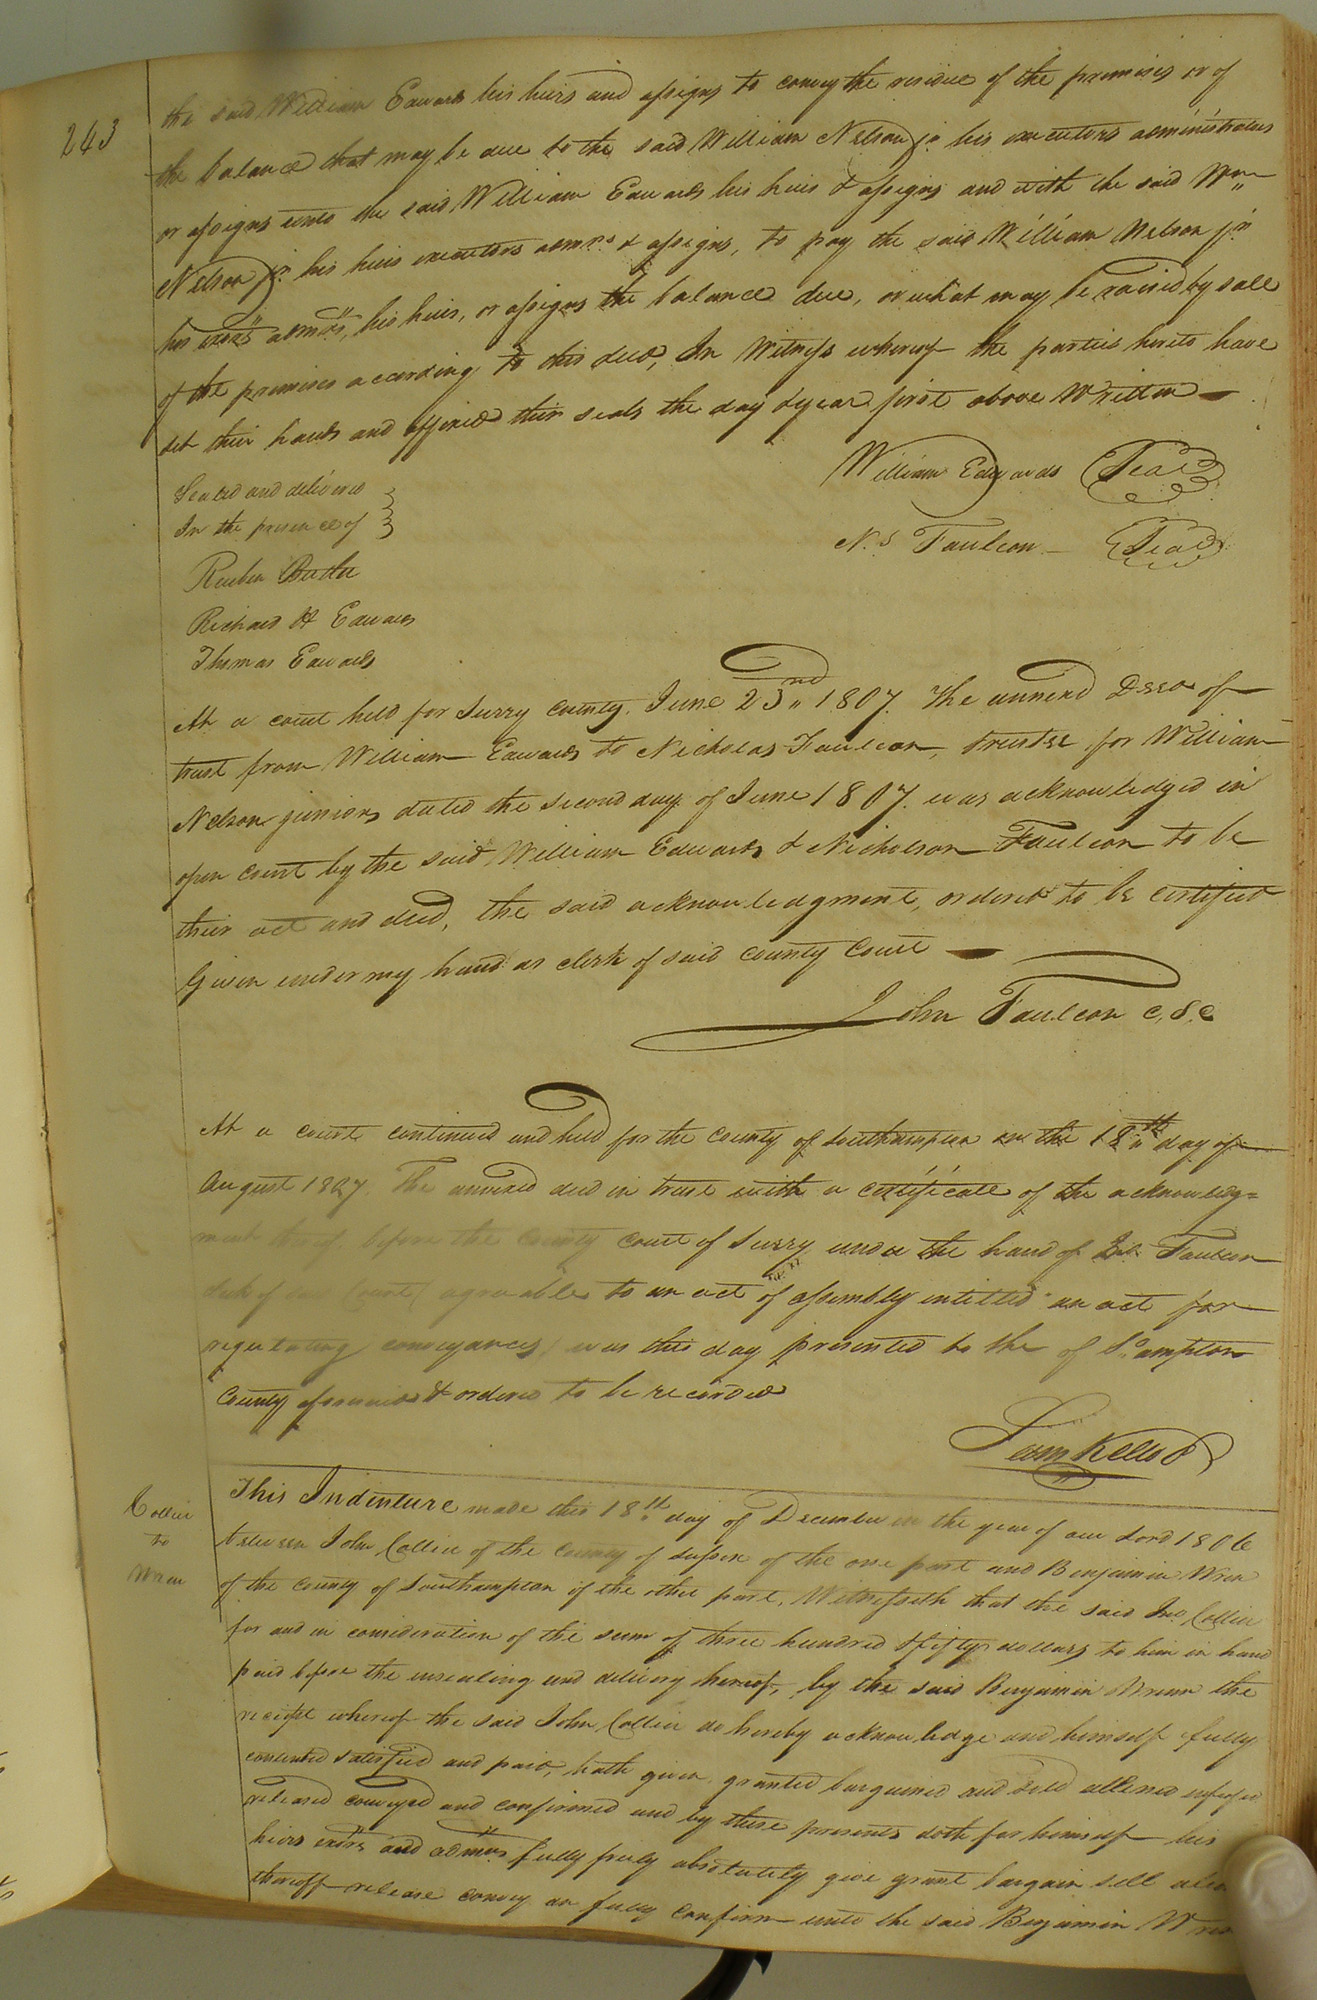 243
the said William Edwards his heirs and assigns to convey the residue of the premises or of
the balance that may be due to the said William Nelson jr. his executors administrators
or assigns unto the said William Edwards his heirs & assigns and with the said Wm
Nelson jr. his heirs executors admrs & assigns, to pay the said William Nelson jr
his exors admrs, his heirs, or assigns the balance due, or what may be raised by sale
of the premises according to this deed, In Witness whereof the parties hereto have
set their hands and affixed their seals the day & year first above Written
William Edwards Seal
Sealed and delivered
In the presence of
Ns Faulcon Seal
Reuben Butler
Richard H Edwards
Thomas Edwards
At a court held for Surry county June 23rd 1807. The annexed Deed of
trust from William Edwards to Nicholas Faulcon, trustee for William
Nelson junior, dated the second day of June 1807. was acknowledged in
open court by the said William Edwards & Nicholson Faulcon to be
their act and deed, the said acknowledgment, ordered to be certified
Given under my hand as clerk of said county Court
John Faulcon C.S.C
At a court continued and held for the county of Southampton on the 18th day of
August 1807. The annexed deed in trust with a certificate of the acknowledg=
ment thereof before the County court of Surry under the hand of Jno Faulcon
clerk of said Court (agreeable to an act of assembly intitled "an act for
regulating conveyances) was this day presented to the of So.ampton
County aforesaid & ordered to be recorded
Sam Kello
Collier
to
Wren
This Indenture made this 18th day of December in the year of our Lord 1806
between John Collier of the county of Sussex of the one part and Benjamin Wren
of the county of Southampton of the other part, Witnesseth that the said Jno Collier
for and in consideration of the sum of three hundred & fifty dollars to him in hand
paid before the ensealing and delivery hereof, by the said Benjamin Wrenn the
receipt whereof the said John Collier do hereby acknowledge and himself fully
contented satisfied and paid, hath given, granted bargained and sold aliened
released conveyed and confirmed and by these presents doth for himself his
heirs exors and admrs fully freely absolutely give grant bargain sell
thereoff release convey an fully confirm unto the said Benjamin Wren